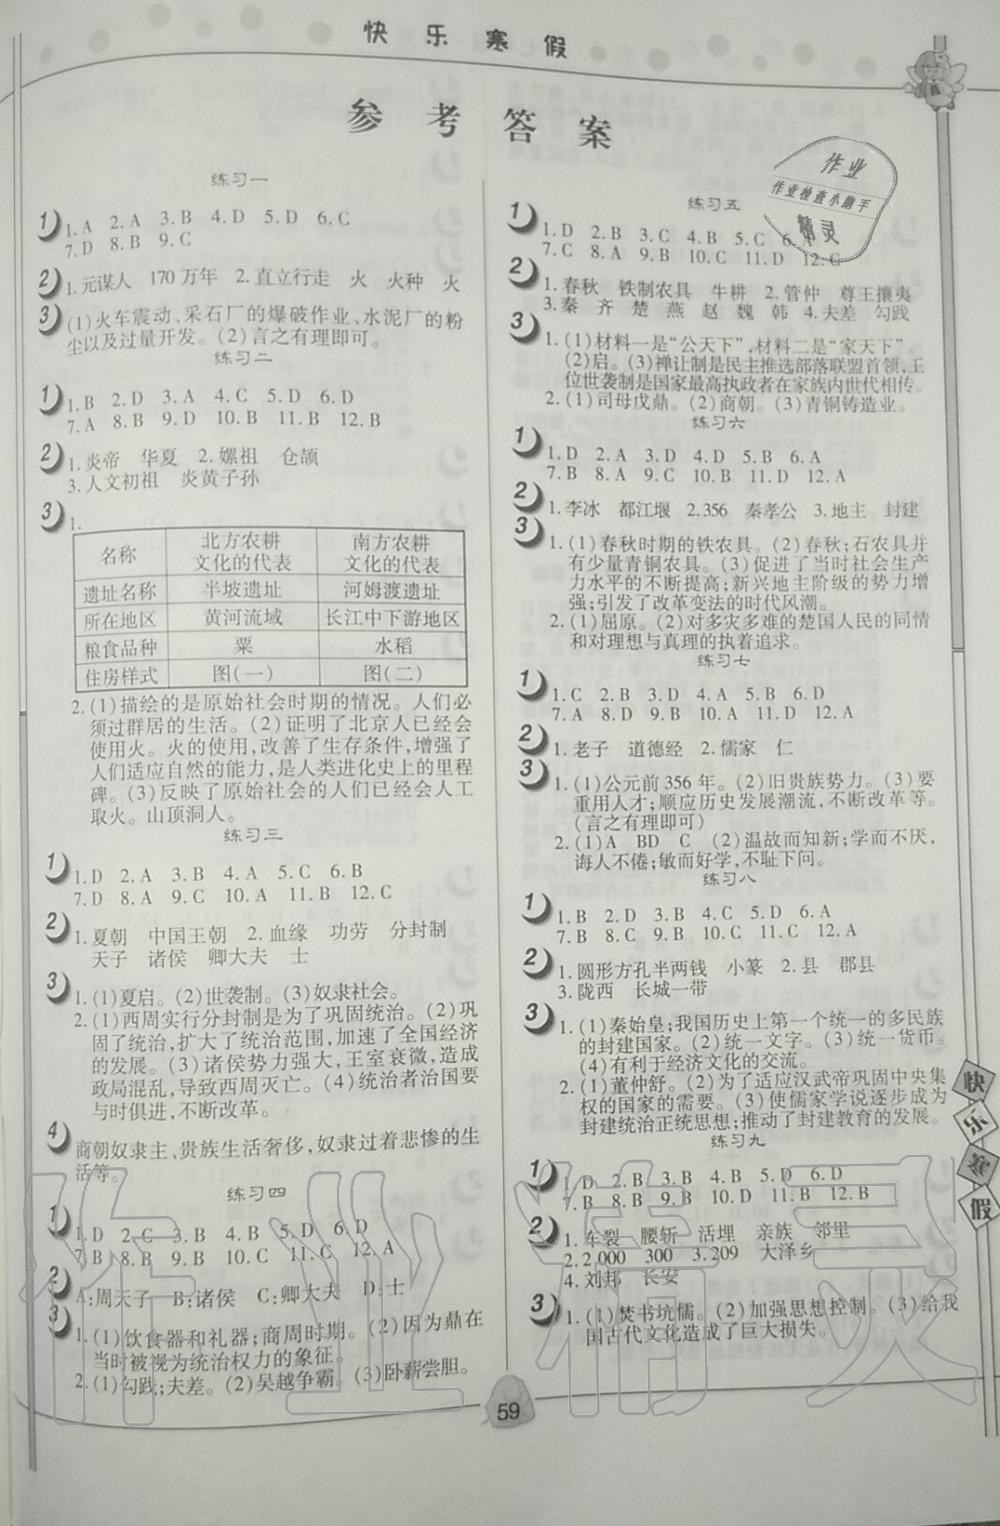 快乐寒假
参考答案
作业
作业检查小助手
精灵
练习一
1
1.A 2.A 3.B 4.D 5.D 6.C
7.D 8.B 9.C
2
1.元谋人 170万年 2.直立行走 火 火种 火
3
(1)火车震动、采石厂的爆破作业、水泥厂的粉
尘以及过量开发。(2)言之有理即可。
练习二
1
1.B 2.D 3.A 4.C 5.D 6.D
7.A 8.B 9.D 10.B 11.B 12.B
2
1.炎帝 华夏 2.嫘祖 仓颉
3.人文初祖 炎黄子孙
3
1.
名称 北方农耕文化的代表 南方农耕文化的代表
遗址名称 半坡遗址 河姆渡遗址
所在地区 黄河流域 长江中下游地区
粮食品种 粟 水稻
住房样式 图(一) 图(二)
2.(1)描绘的是原始社会时期的情况。人们必
须过群居的生活。(2)证明了北京人已经会
使用火。火的使用,改善了生存条件,增强了
人们适应自然的能力,是人类进化史上的里程
碑。(3)反映了原始社会的人们已经会人工
取火。山顶洞人。
练习三
1
1.D 2.A 3.B 4.A 5.C 6.B
7.D 8.A 9.C 10.A 11.B 12.C
2
1.夏朝 中国王朝 2.血缘 功劳 分封制
天子 诸侯 卿大夫 士
3
1.(1)夏启。(2)世袭制。(3)奴隶社会。
2.(1)西周实行分封制是为了巩固统治。(2)巩
固了统治,扩大了统治范围,加速了全国经济
的发展。(3)诸侯势力强大,王室衰微,造成
政局混乱,导致西周灭亡。(4)统治者治国要
与时俱进,不断改革。
4
商朝奴隶主、贵族生活奢侈,奴隶过着悲惨的生
活等。
练习四
1
1.D 2.C 3.B 4.B 5.D 6.D
7.B 8.B 9.B 10.C 11.C 12.A
2
A:周天子 B:诸侯 C:卿大夫 D:士
3
1.(1)饮食器和礼器;商周时期。(2)因为鼎在
当时被视为统治权力的象征。
2.(1)勾践;夫差。(2)吴越争霸。(3)卧薪尝胆。
练习五
1
1.D 2.B 3.C 4.B 5.C 6.A
7.C 8.A 9.B 10.C 11.D 12.C
2
1.春秋 铁制农具 牛耕 2.管仲 尊王攘夷
3.秦 齐 楚 燕 赵 魏 韩 4.夫差 勾践
3
1.(1)材料一是“公天下”,材料二是“家天下”。
(2)启。(3)禅让制是民主推选部落联盟首领,王
位世袭制是国家最高执政者在家族内世代相传。
2.(1)司母戊鼎。(2)商朝。(3)青铜铸造业。
练习六
1
1.D 2.A 3.D 4.D 5.B 6.B
7.B 8.A 9.C 10.B 11.D 12.A
2
1.李冰 都江堰 2.356 秦孝公 3.地主 封建
3
1.(1)春秋时期的铁农具。(2)春秋;石农具并
有少量青铜农具。(3)促进了当时社会生产
力水平的不断提高;新兴地主阶级的势力增
强;引发了改革变法的时代风潮。
2.(1)屈原。(2)对多灾多难的楚国人民的同情
和对理想与真理的执着追求。
练习七
1
1.C 2.B 3.D 4.A 5.B 6.D
7.A 8.D 9.B 10.A 11.D 12.A
2
1.老子 道德经 2.儒家 仁
3
1.(1)公元前356年。(2)旧贵族势力。(3)要
重用人才;顺应历史发展潮流,不断改革等。
(言之有理即可)
2.(1)A BD C (2)温故而知新;学而不厌,
诲人不倦;敏而好学,不耻下问。
练习八
1
1.B 2.D 3.B 4.C 5.D 6.A
7.B 8.B 9.C 10.B 11.C 12.A
2
1.圆形方孔半两钱 小篆 2.县 郡县
3.陇西 长城一带
3
1.(1)秦始皇;我国历史上第一个统一的多民族
的封建国家。(2)统一文字。(3)统一货币。
(4)有利于经济文化的交流。
2.(1)董仲舒。(2)为了适应汉武帝巩固中央集
权的国家的需要。(3)使儒家学说逐步成为
封建统治正统思想;推动了封建教育的发展。
练习九
1
1.D 2.B 3.B 4.B 5.D 6.D
7.B 8.B 9.B 10.D 11.B 12.B
2
1.车裂 腰斩 活埋 亲族 邻里
2.2000 300 3.209 大泽乡
4.刘邦 长安
3
1.(1)焚书坑儒。(2)加强思想控制。(3)给我
国古代文化造成了巨大损失。
快乐寒假
作业精灵
59